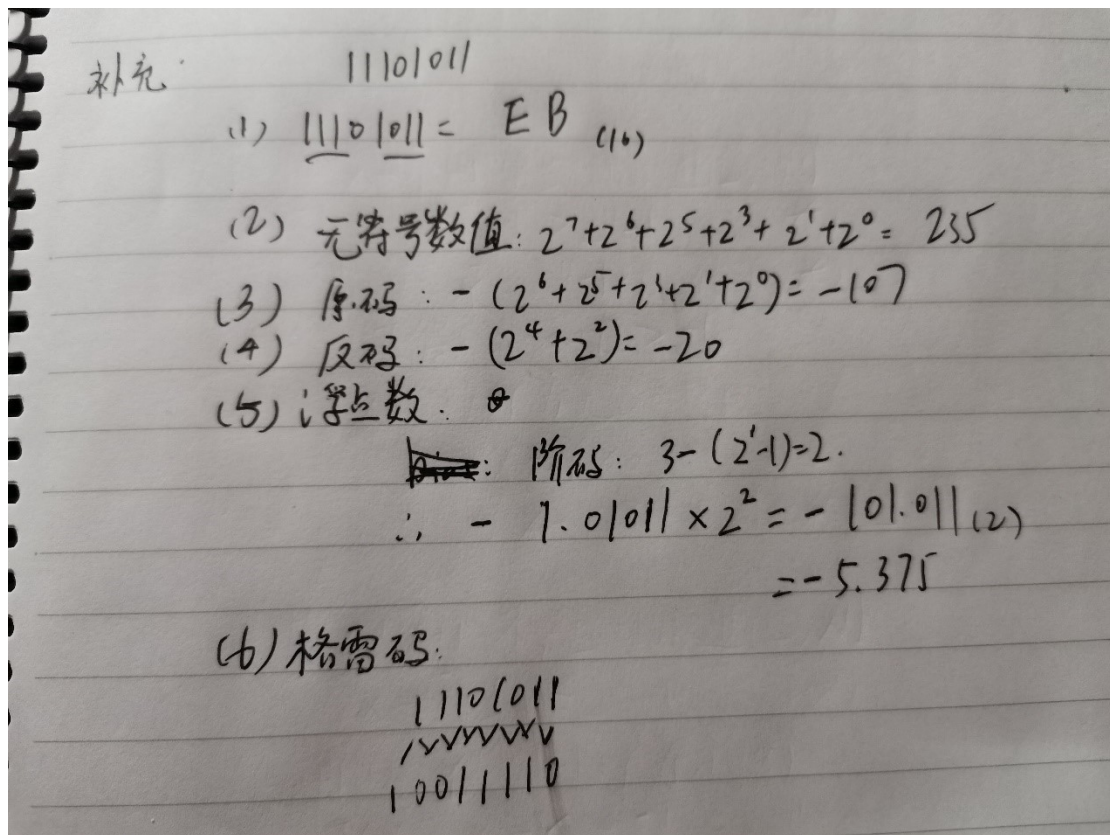 补充:
11101011
(1) 11101011 = EB (16)
(2) 无符号数值: 2⁷+2⁶+2⁵+2³+2¹+2⁰= 235
(3) 原码: -(2⁶+2⁵+2³+2¹+2⁰)= -107
(4) 反码: -(2⁴+2²)= -20
(5) 浮点数:
阶码: 3-(2¹-1)=2.
∴ - 1.01011×2² = -101.011 (2)
=-5.375
(6) 格雷码:
11101011
10011110